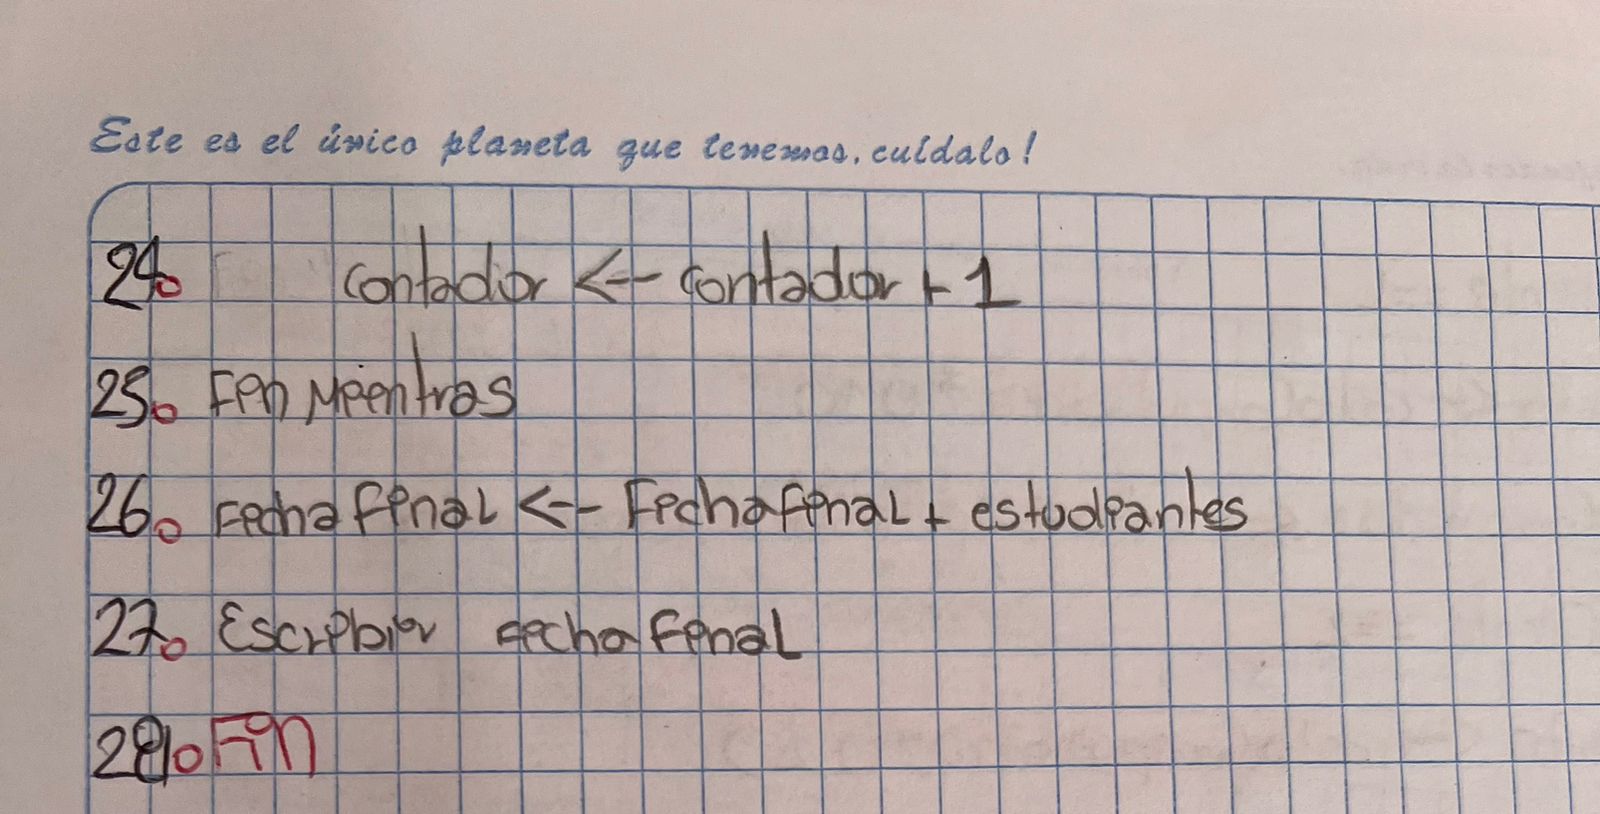 Este es el único planeta que tenemos, cuídalo!
24. contador <-- contador + 1
25. Fin Mientras
26. Fecha final <-- Fecha final + estudiantes
27. Escribir Fecha final
28. Fin